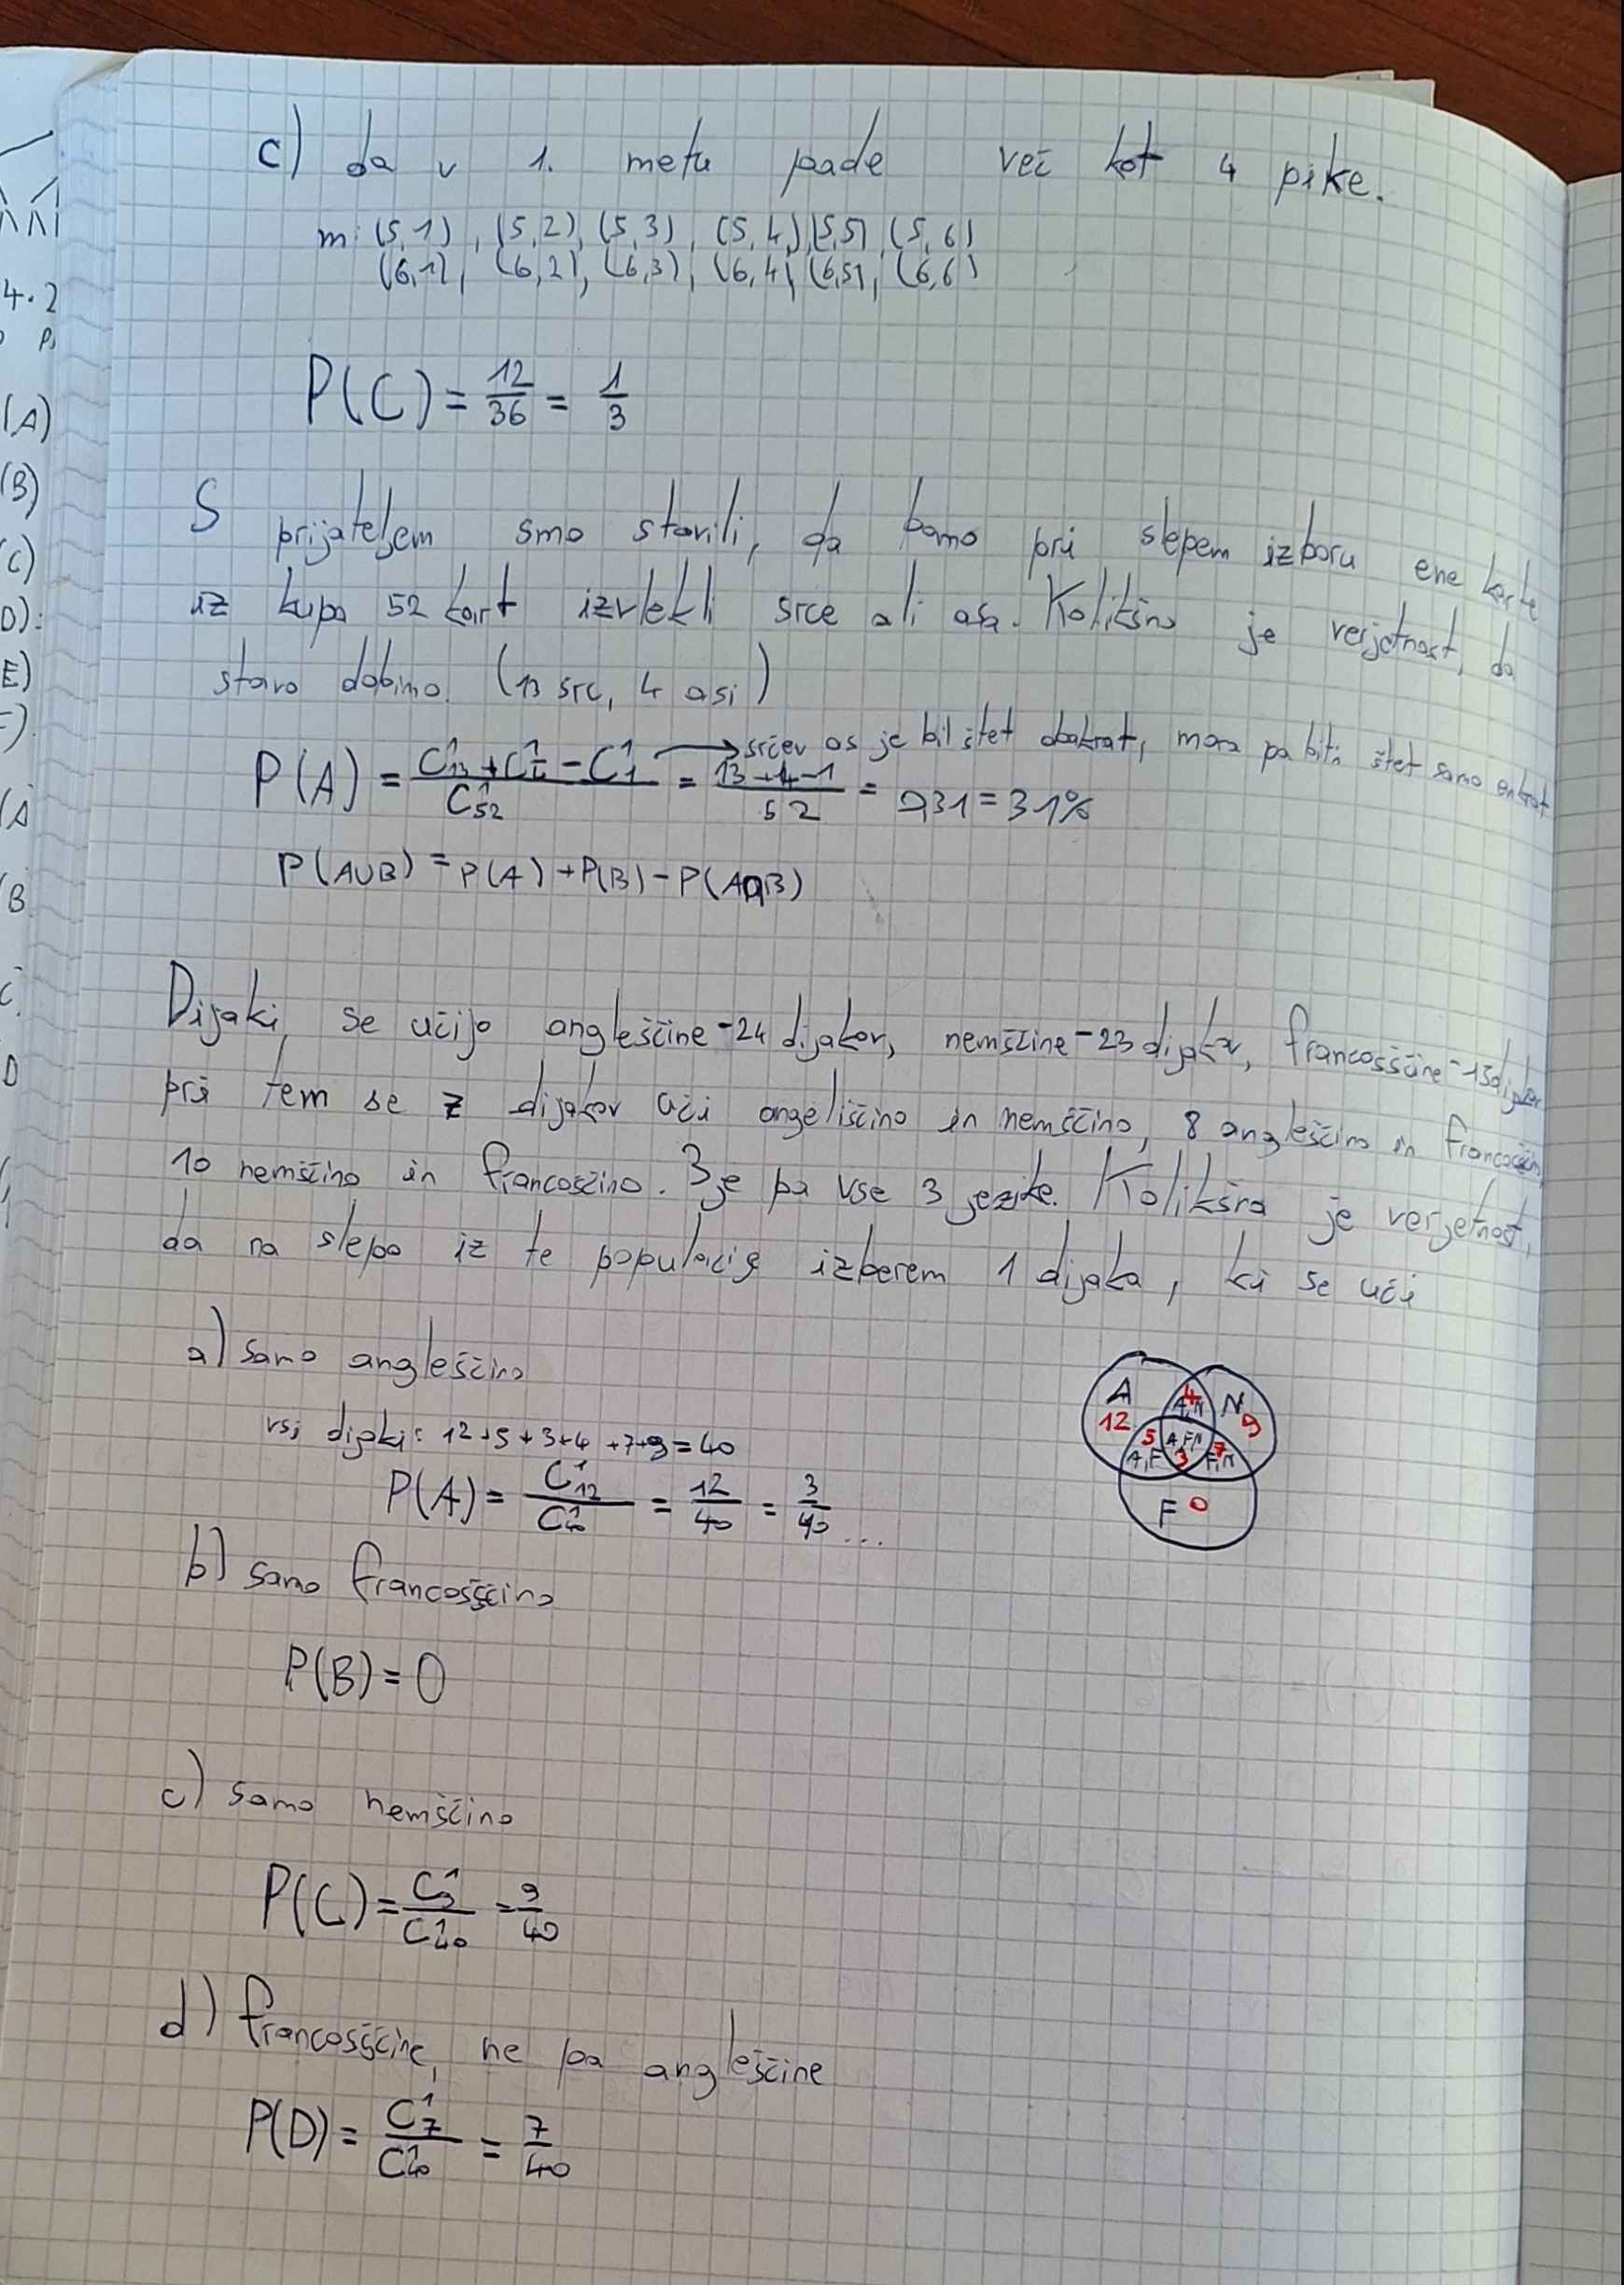 c) da v 1. metu pade več kot 4 pike.
m: (5,1), (5,2), (5,3), (5,4), (5,5), (5,6)
(6,1), (6,2), (6,3), (6,4), (6,5), (6,6)
P(C) = 12/36 = 1/3
S prijateljem smo stavili, da bomo pri slepem izboru ene karte
iz kupa 52 kart izvlekli srce ali asa. Kolikšna je verjetnost, da
stavo dobimo. (13 src, 4 asi)
→ srčev as je bil štet dvakrat, mora pa biti štet samo enkrat
P(A) = (C¹₁₃ + C¹₄ - C¹₁)/C¹₅₂ = (13+4-1)/52 = 0,31 = 31%
P(A∪B) = P(A) + P(B) - P(A∩B)
Dijaki se učijo angleščine - 24 dijakov, nemščine - 23 dijakov, francosščine - 15 dijakov
pri tem se 7 dijakov uči angeliščino in nemščino, 8 angleščino in francoščino,
10 nemščino in francoščino. 3 je pa vse 3 jezike. Kolikšna je verjetnost,
da na slepo iz te populacije izberem 1 dijaka, ki se uči
a) samo angleščino
A 12 4 A,N N 9
5 A,F,N 7
A,F 3 F,N
F 0
vsi dijaki: 12+5+3+4+7+9=40
P(A) = C¹₁₂/C¹₄₀ = 12/40 = 3/40 ...
b) samo francosščino
P(B) = 0
c) samo nemščino
P(C) = C¹₉/C¹₄₀ = 9/40
d) francosščine, ne pa angleščine
P(D) = C¹₇/C¹₄₀ = 7/40
4·2
(A)
(B)
(C)
D):
E)